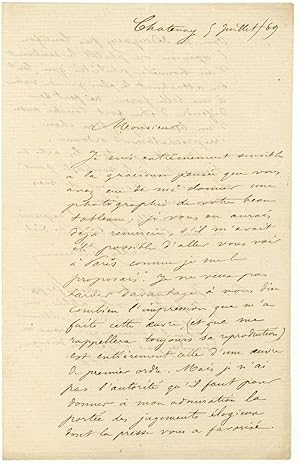 Chatenay 5 Juillet /69
Monsieur,
Je suis entièrement sensible
à la gracieuse pensée que vous
avez eue de me donner une
photographie de votre beau
tableau; je vous en aurais
déjà remercié, s'il m'avait
été possible d'aller vous voir
à Paris comme je me le
proposais. Je ne veux pas
tarder davantage à vous dire
combien l'impression que m'a
faite cette œuvre (et que me
rappellera toujours sa reproduction)
est entièrement celle d'une œuvre
de premier ordre. Mais je n'ai
pas l'autorité qu'il faut pour
donner à mon admiration la
portée des jugements élogieux
dont la presse vous a favorisé.